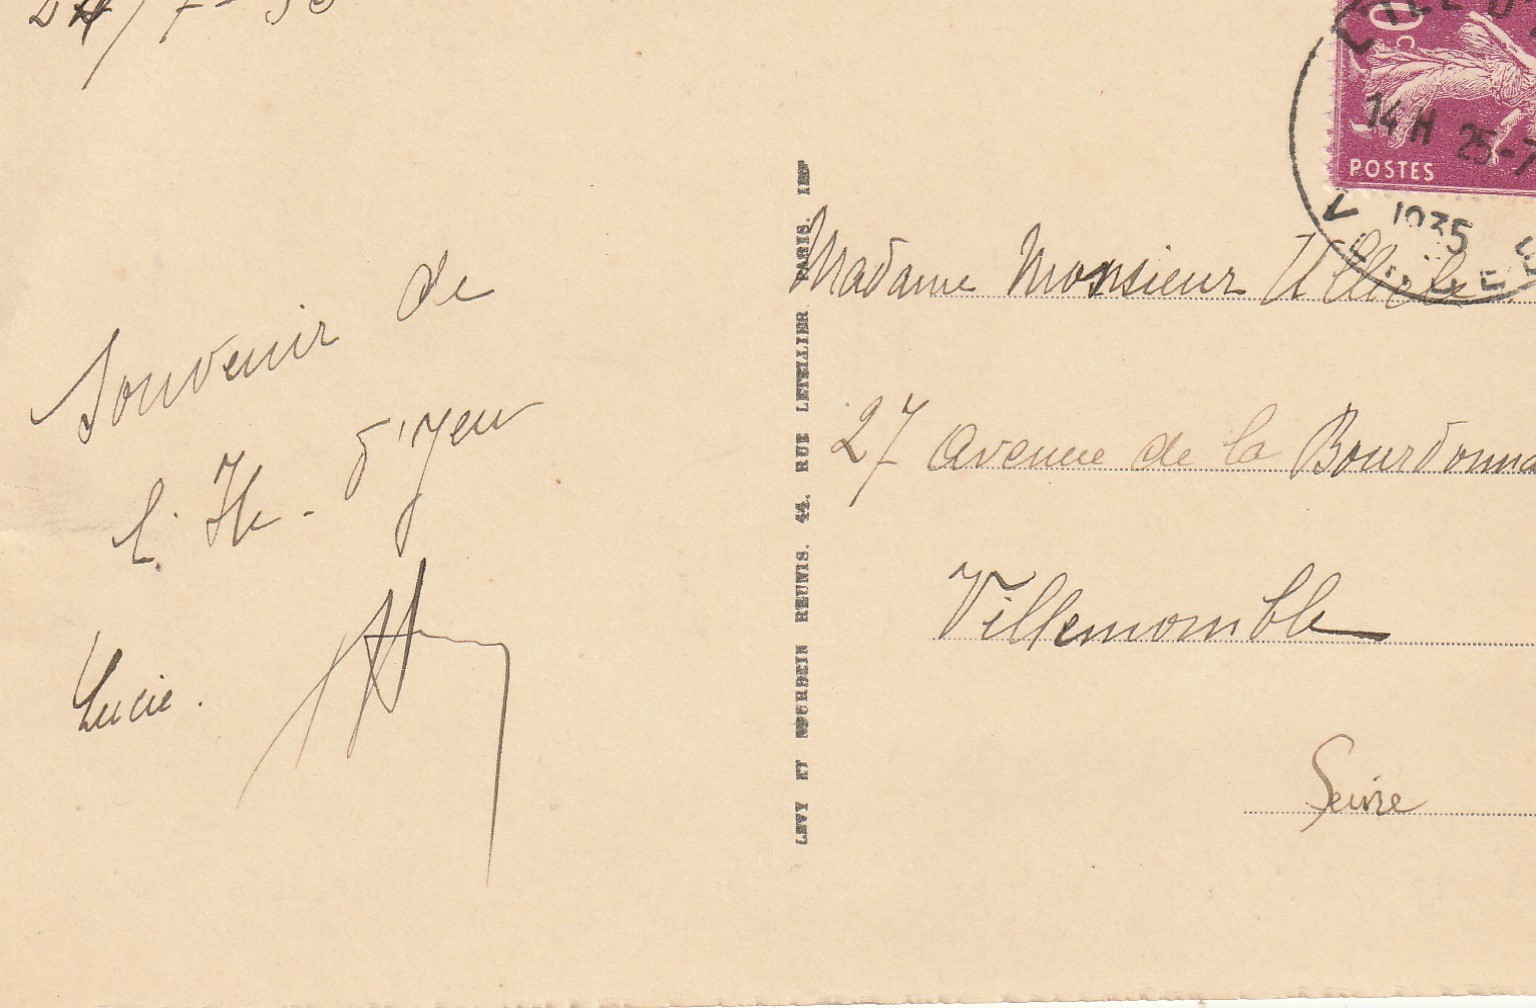 24/7-35
Souvenir de
l'Ile d'Yeu
Lucie.
LEVY ET NEURDEIN REUNIS. 44. RUE LETELLIER PARIS. IMP
L'ILE D'
14 H 25-7
1935
VENDEE
0c
POSTES
Madame Monsieur
27 avenue de la Bourdonna
Villemomble
Seine